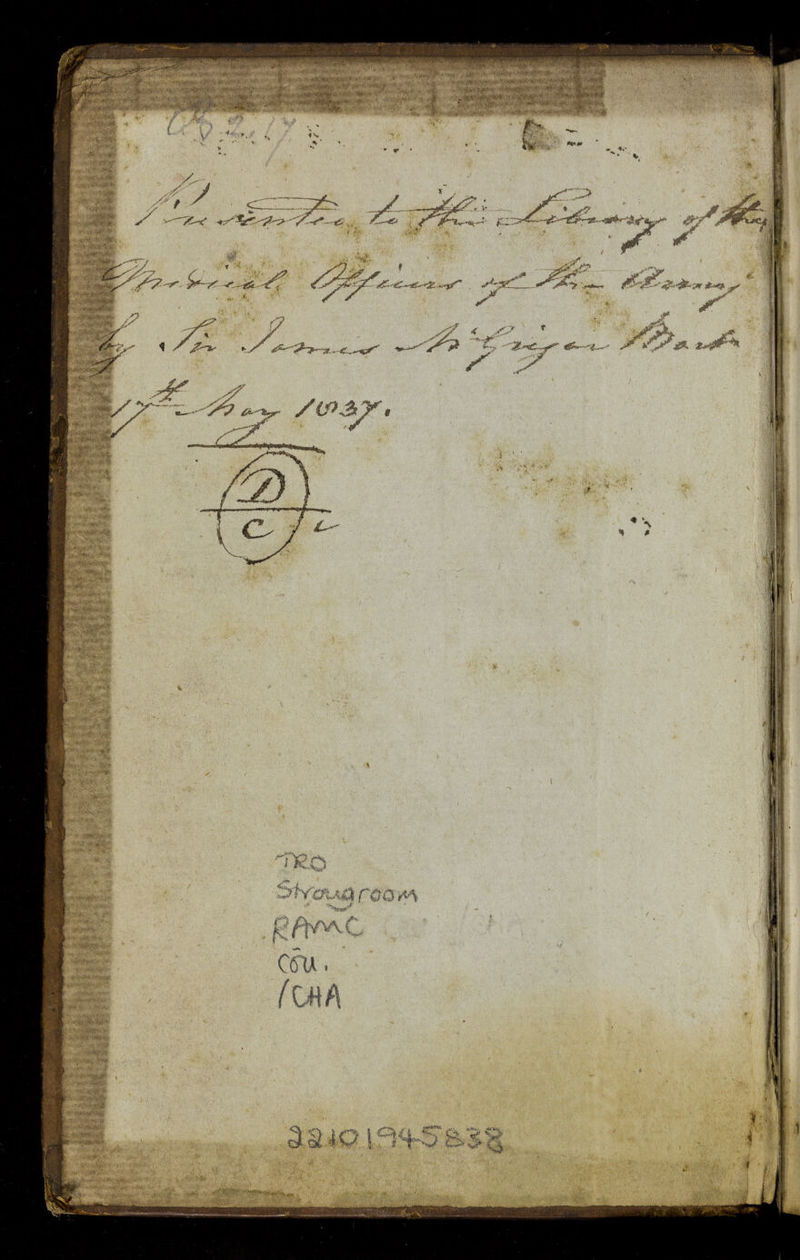 2.17
Presented to the Library of the
Medical Officers of the Army
by Sir James McGrigor Bart
17th May 1837.
D
C
TRO
Strongroom
RAMC
Coll.
/CHA
22101945838